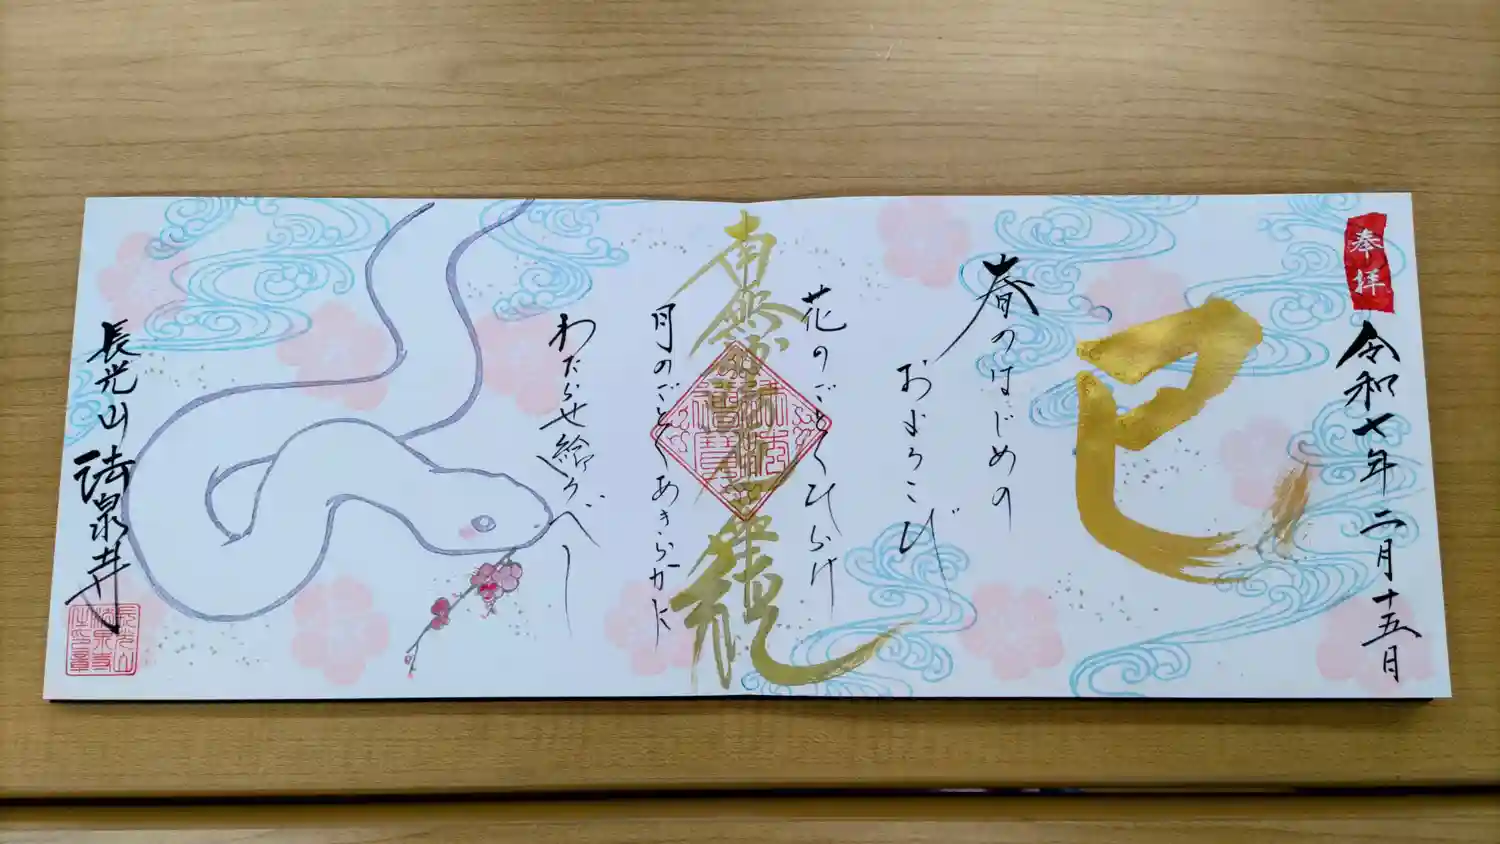 奉拝
令和七年二月十五日
巳
春のはじめの
およろこび
花のごとくひらけ
南無妙法蓮華経
月のごとくあきらかに
わたらせ給うべし
長光山 法泉寺